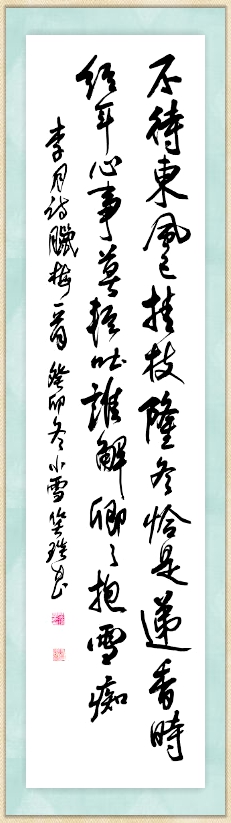 不待東風已挂枝隆冬恰是遞香時
經年心事莫輕吐誰解卿卿抱雪痴
李月詩臘梅一首 癸卯冬小雪笑琰書